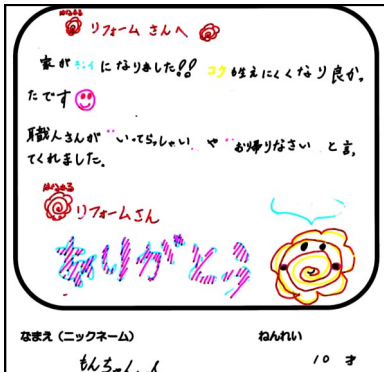 はなまる
リフォームさんへ
家がキレイになりました!! コケが生えにくくなり良かっ
たです
職人さんが"いってらっしゃい"や"お帰りなさい"と言っ
てくれました。
はなまる
リフォームさん
ありがとう
なまえ(ニックネーム) ねんれい
10才